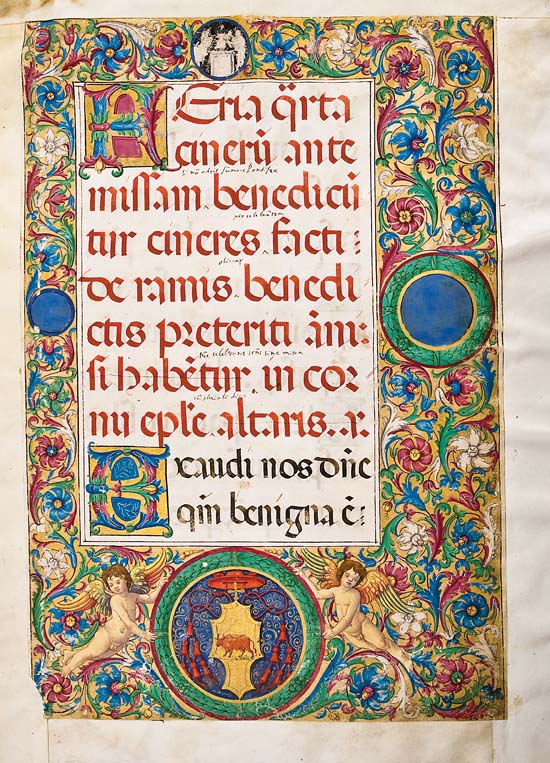 FEria q̄rta
cinerū ante
missam benedicū
tur cineres facti
de ramis benedi
ctis preteriti āni:
si habētur in cor
nu epl̄e altaris. a:
Exaudi nos dn̄e
qm̄ benigna ē: